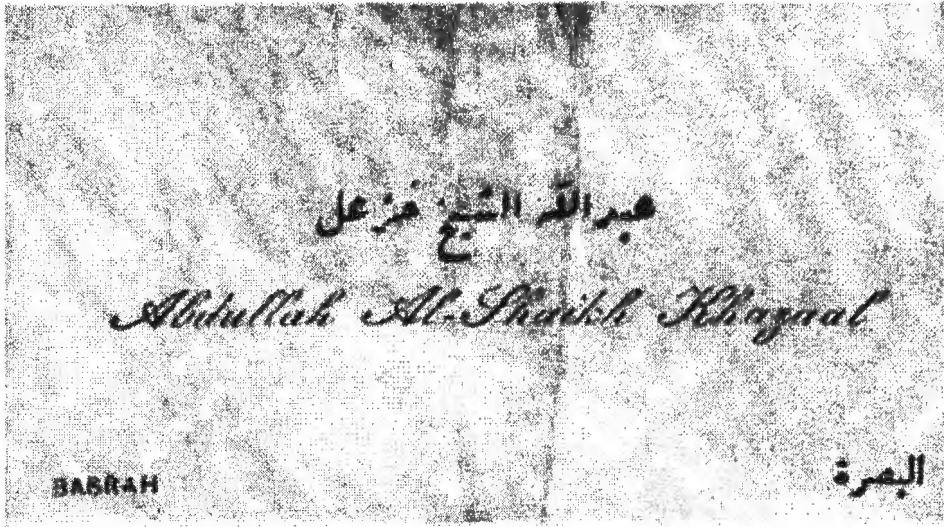 عبدالله الشيخ خزعل
Abdullah Al-Shaikh Khazaal
BASRAH
البصرة